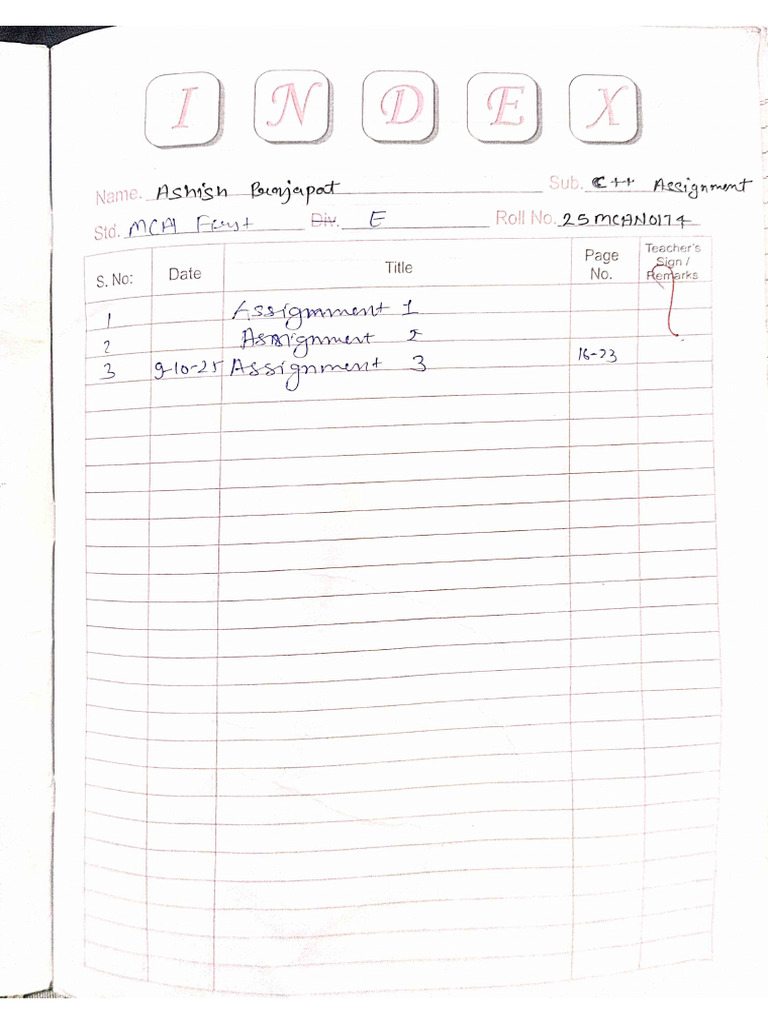 INDEX
Name. Ashish Prajapat Sub. C++ Assignment
Std. MCA First Div. E Roll No. 25MCAN0174
S. No: Date Title Page No. Teacher's Sign / Remarks
1 Assignment 1
2 Assignment 2
3 9-10-25 Assignment 3 16-23